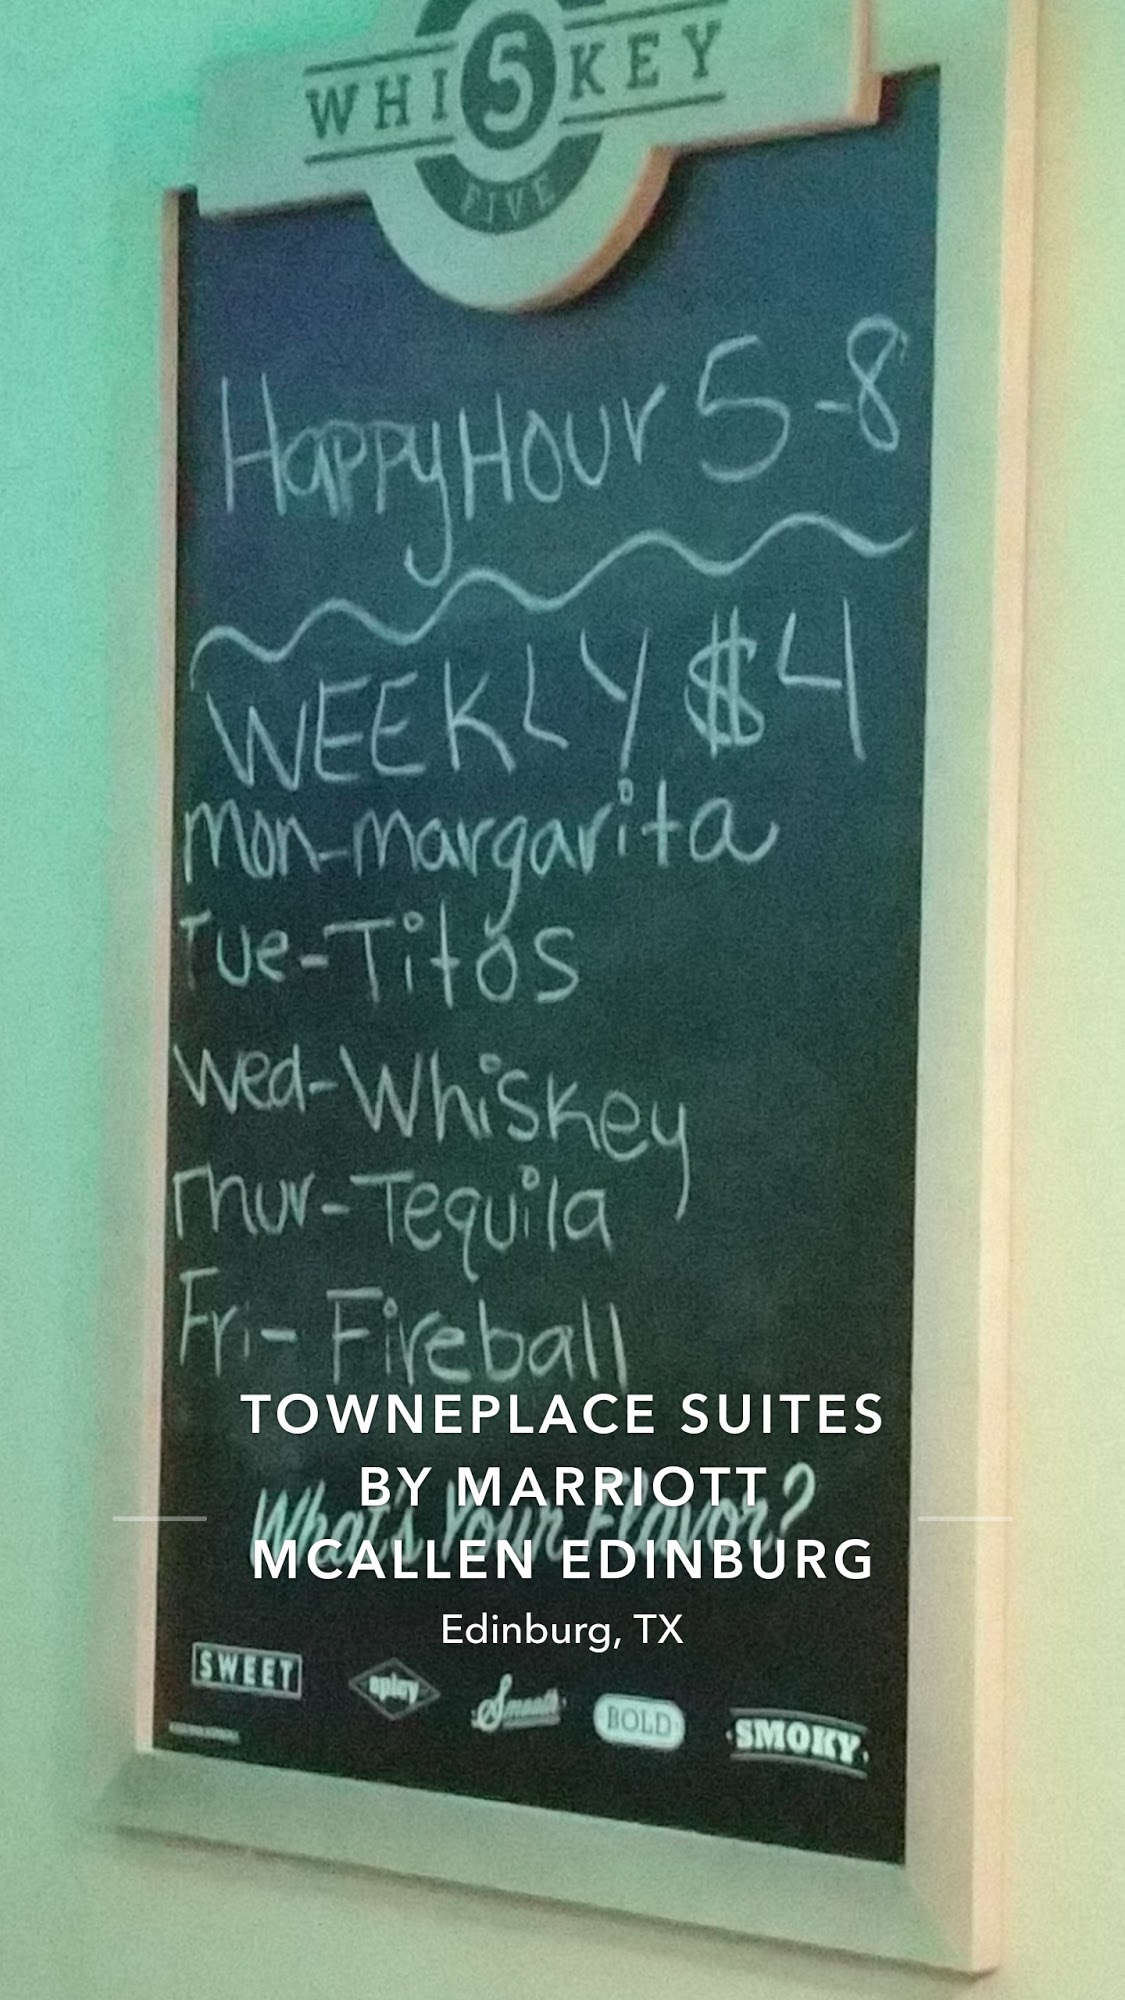 WHI5KEY
FIVE
Happy Hour 5-8
WEEKLY $4
Mon-margarita
Tue-Titos
Wed-Whiskey
Thur-Tequila
Fri-Fireball
TOWNEPLACE SUITES
BY MARRIOTT
What's Your Flavor?
MCALLEN EDINBURG
Edinburg, TX
SWEET spicy Smooth BOLD SMOKY